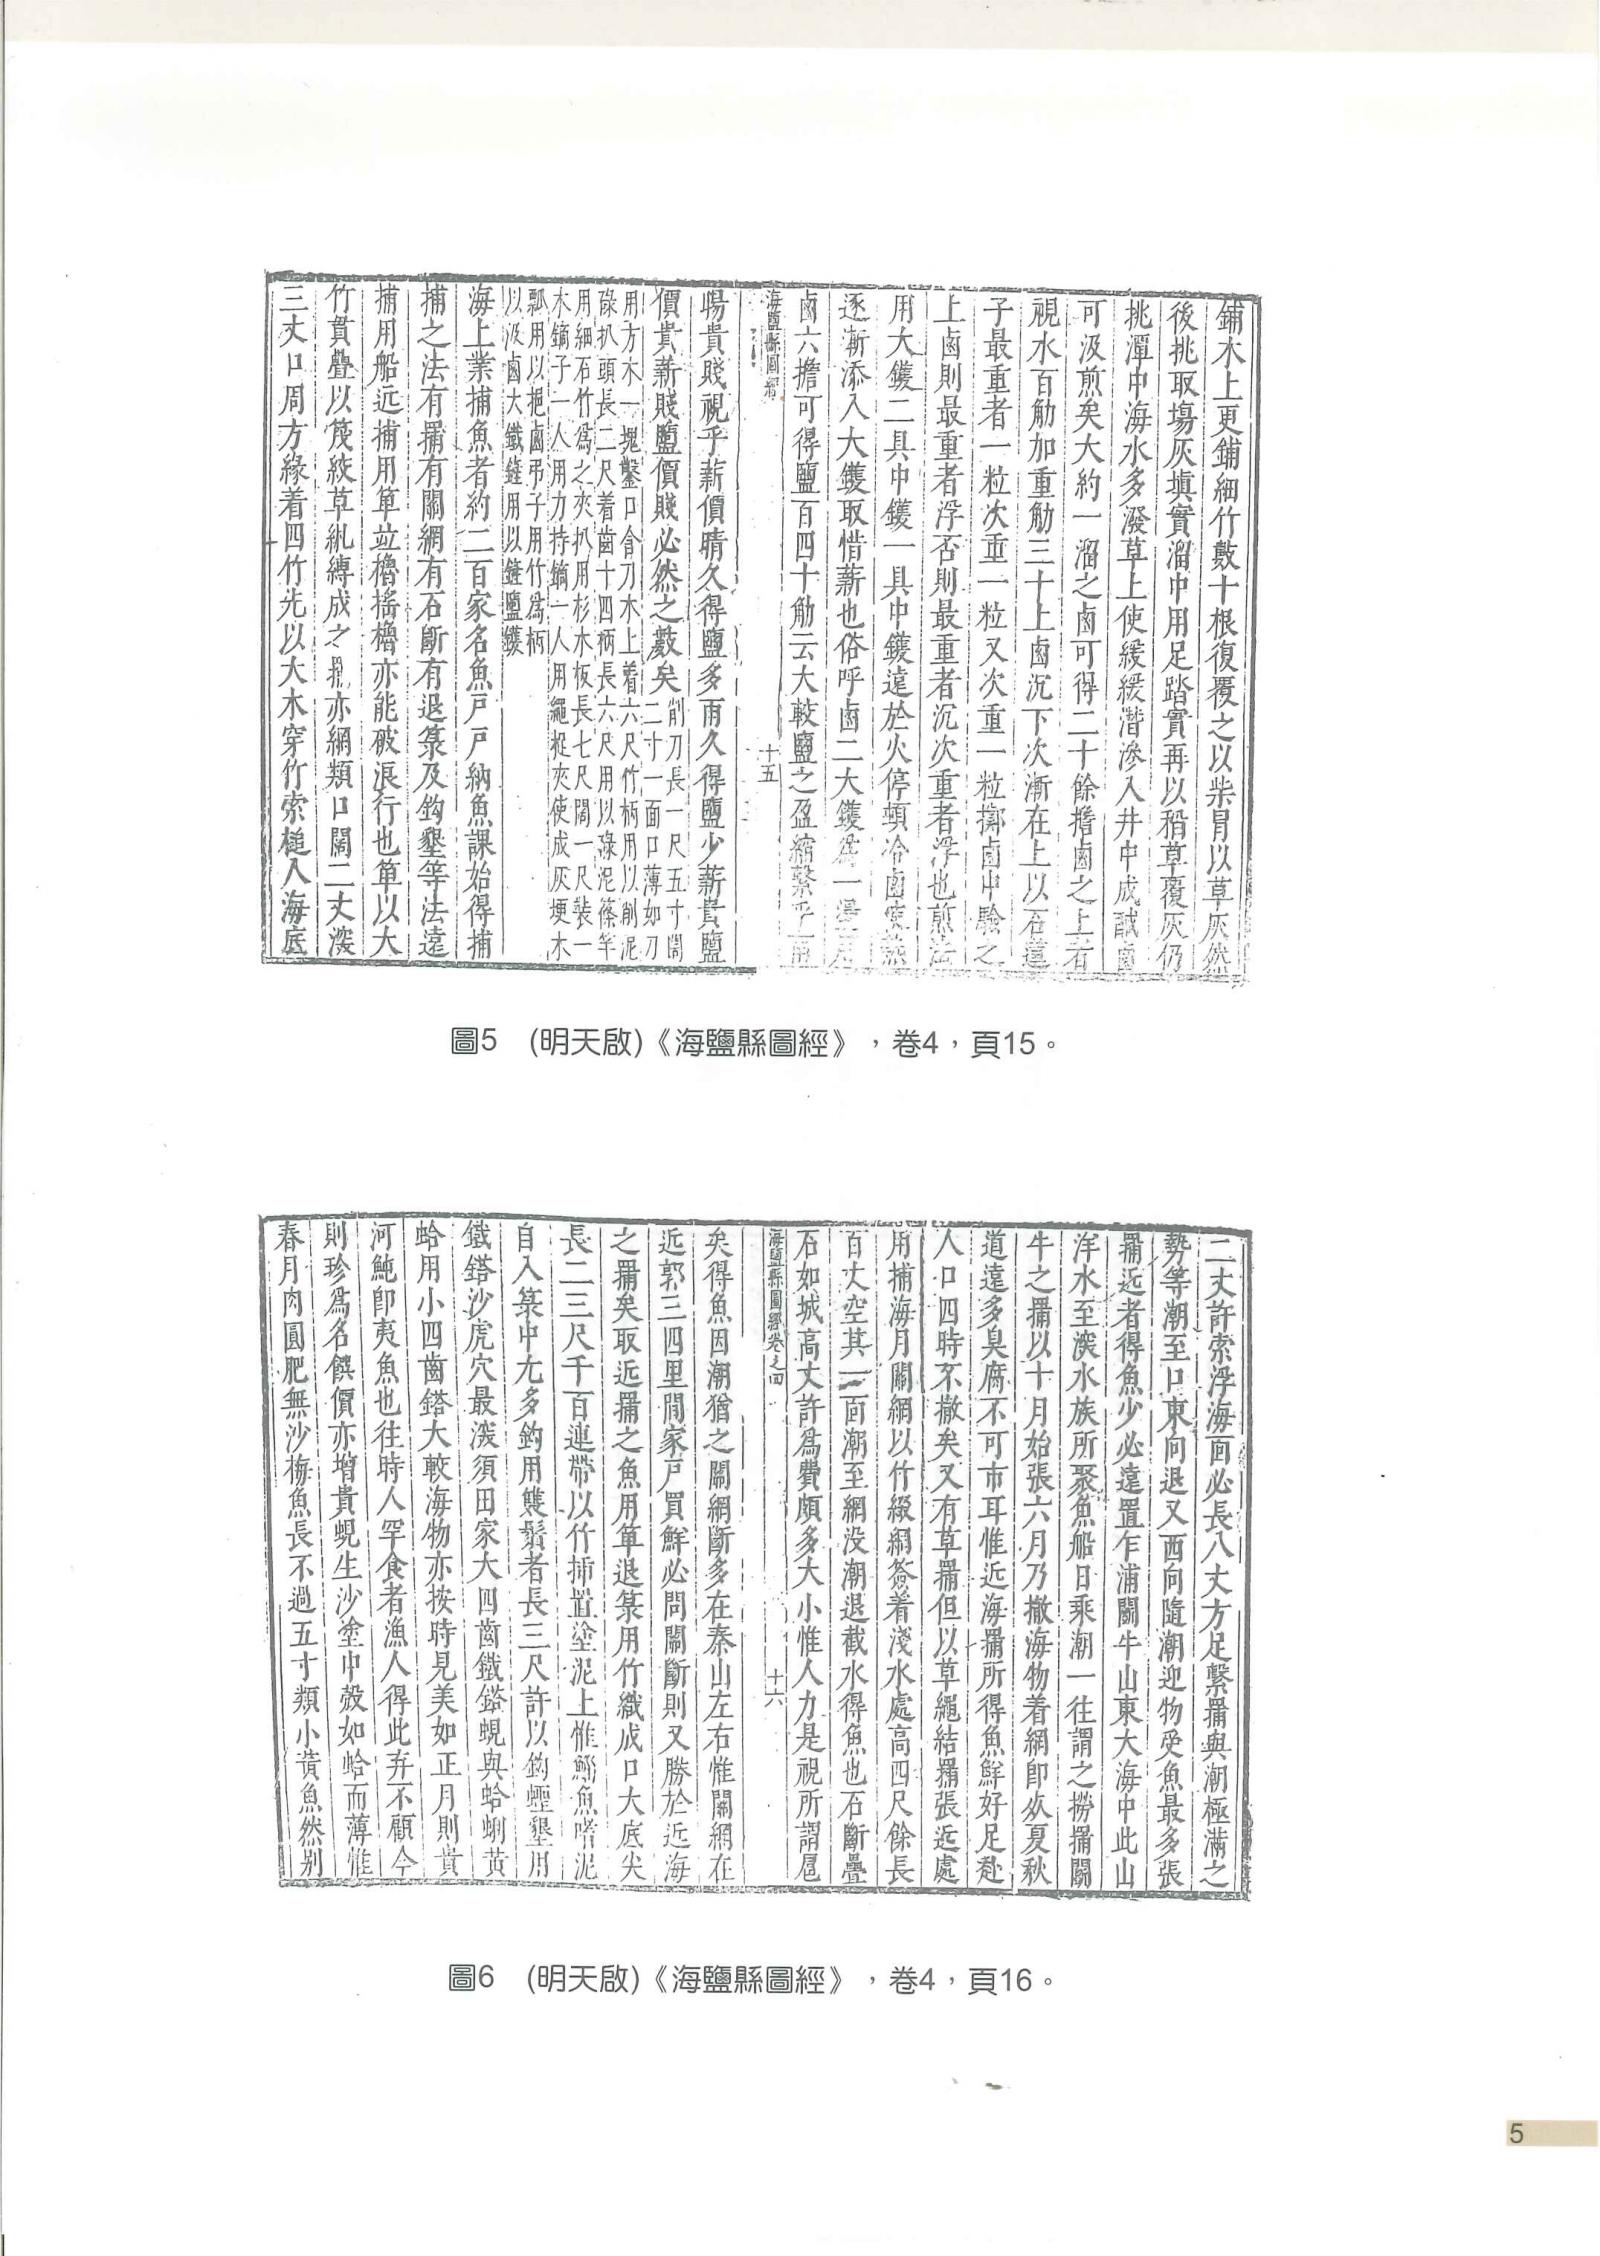 鋪木上更鋪細竹數十根復覆之以柴冐以草灰然
後挑取塲灰塡實溜中用足踏實再以稻草覆灰仍
挑潭中海水多潑草上使緩緩潛滲入井中成鹹鹵
可汲煎矣大約一溜之鹵可得二十餘擔鹵之上者
視水百觔加重觔三十上鹵沉下次漸在上以石蓮
子最重者一粒次重一粒又次重一粒擲鹵中驗之
上鹵則最重者浮否則最重者沉次重者浮也煎法
用大鑊二具中鑊一具中鑊遠於火停頓冷鹵
逐漸添入大鑊取惜薪也俗呼鹵二大鑊爲一
鹵六擔可得鹽百四十觔云大較鹽之盈縮繫乎
海鹽縣圖經
十五
暘貴賤視乎薪價晴久得鹽多雨久得鹽少薪貴鹽
價貴薪賤鹽價賤必然之數矣
削刀長一尺五寸闊
二寸一面口薄如刀
用方木一塊鑿口含刀木上着六尺竹柄用以削泥
碌扒頭長二尺着齒十四柄長六尺用以碌泥篠竿
用細石竹爲之夾扒用杉木板長七尺闊一尺裝一
木鏑子一人用力持鏑一人用繩捉夾使成灰埂木
瓢用以挹鹵弔子用竹爲柄
以汲鹵大鐵鏟用以鏟鹽鑊
海上業捕魚者約二百家名魚戸戸納魚課始得捕
捕之法有䍡有關網有石斷有退籇及鈎墾等法遠
捕用船近捕用箄並櫓搖櫓亦能破浪行也箄以大
竹貫疊以筏紋草紈縳成之䍡亦網類口闊二丈深
三丈口周方緣着四竹先以大木穿竹索槌入海底
圖5　(明天啟)《海鹽縣圖經》，卷4，頁15。
二丈許索浮海面必長八丈方足繫䍡與潮極滿之
勢等潮至口東向退又西向隨潮迎物受魚最多張
䍡近者得魚少必遠置乍浦關牛山東大海中此山
洋水至深水族所聚魚船日乘潮一往謂之撈䍡關
牛之䍡以十月始張六月乃撤海物着網卽烾夏秋
道遠多臭腐不可市耳惟近海䍡所得魚鮮好足赴
人口四時不撤矣又有草䍡但以草繩結䍡張近處
用捕海月關網以竹綴網簽着淺水處高四尺餘長
百丈空其一面潮至網没潮退截水得魚也石斷疊
石如城高丈許爲費頗多大小惟人力是視所謂扈
海鹽縣圖經卷之四
十六
矣得魚因潮猶之關網斷多在秦山左右惟關網在
近郭三四里間家戸買鮮必問關斷則又勝於近海
之䍡矣取近䍡之魚用箄退籇用竹織成口大底尖
長二三尺千百連帶以竹揷置塗泥上惟鯔魚嗜泥
自入籇中尢多鈎用雙鬚者長三尺許以鈎蟶墾用
鐵鎝沙虎穴最深須田家大四齒鐵鎝蜆與蛤蜊黄
蛤用小四齒鎝大較海物亦按時見美如正月則貴
河魨卽夷魚也往時人罕食者漁人得此弃不顧今
則珍爲名饌價亦增貴蜆生沙塗中殼如蛤而薄惟
春月肉圓肥無沙梅魚長不過五寸類小黄魚然别
圖6　(明天啟)《海鹽縣圖經》，卷4，頁16。
5